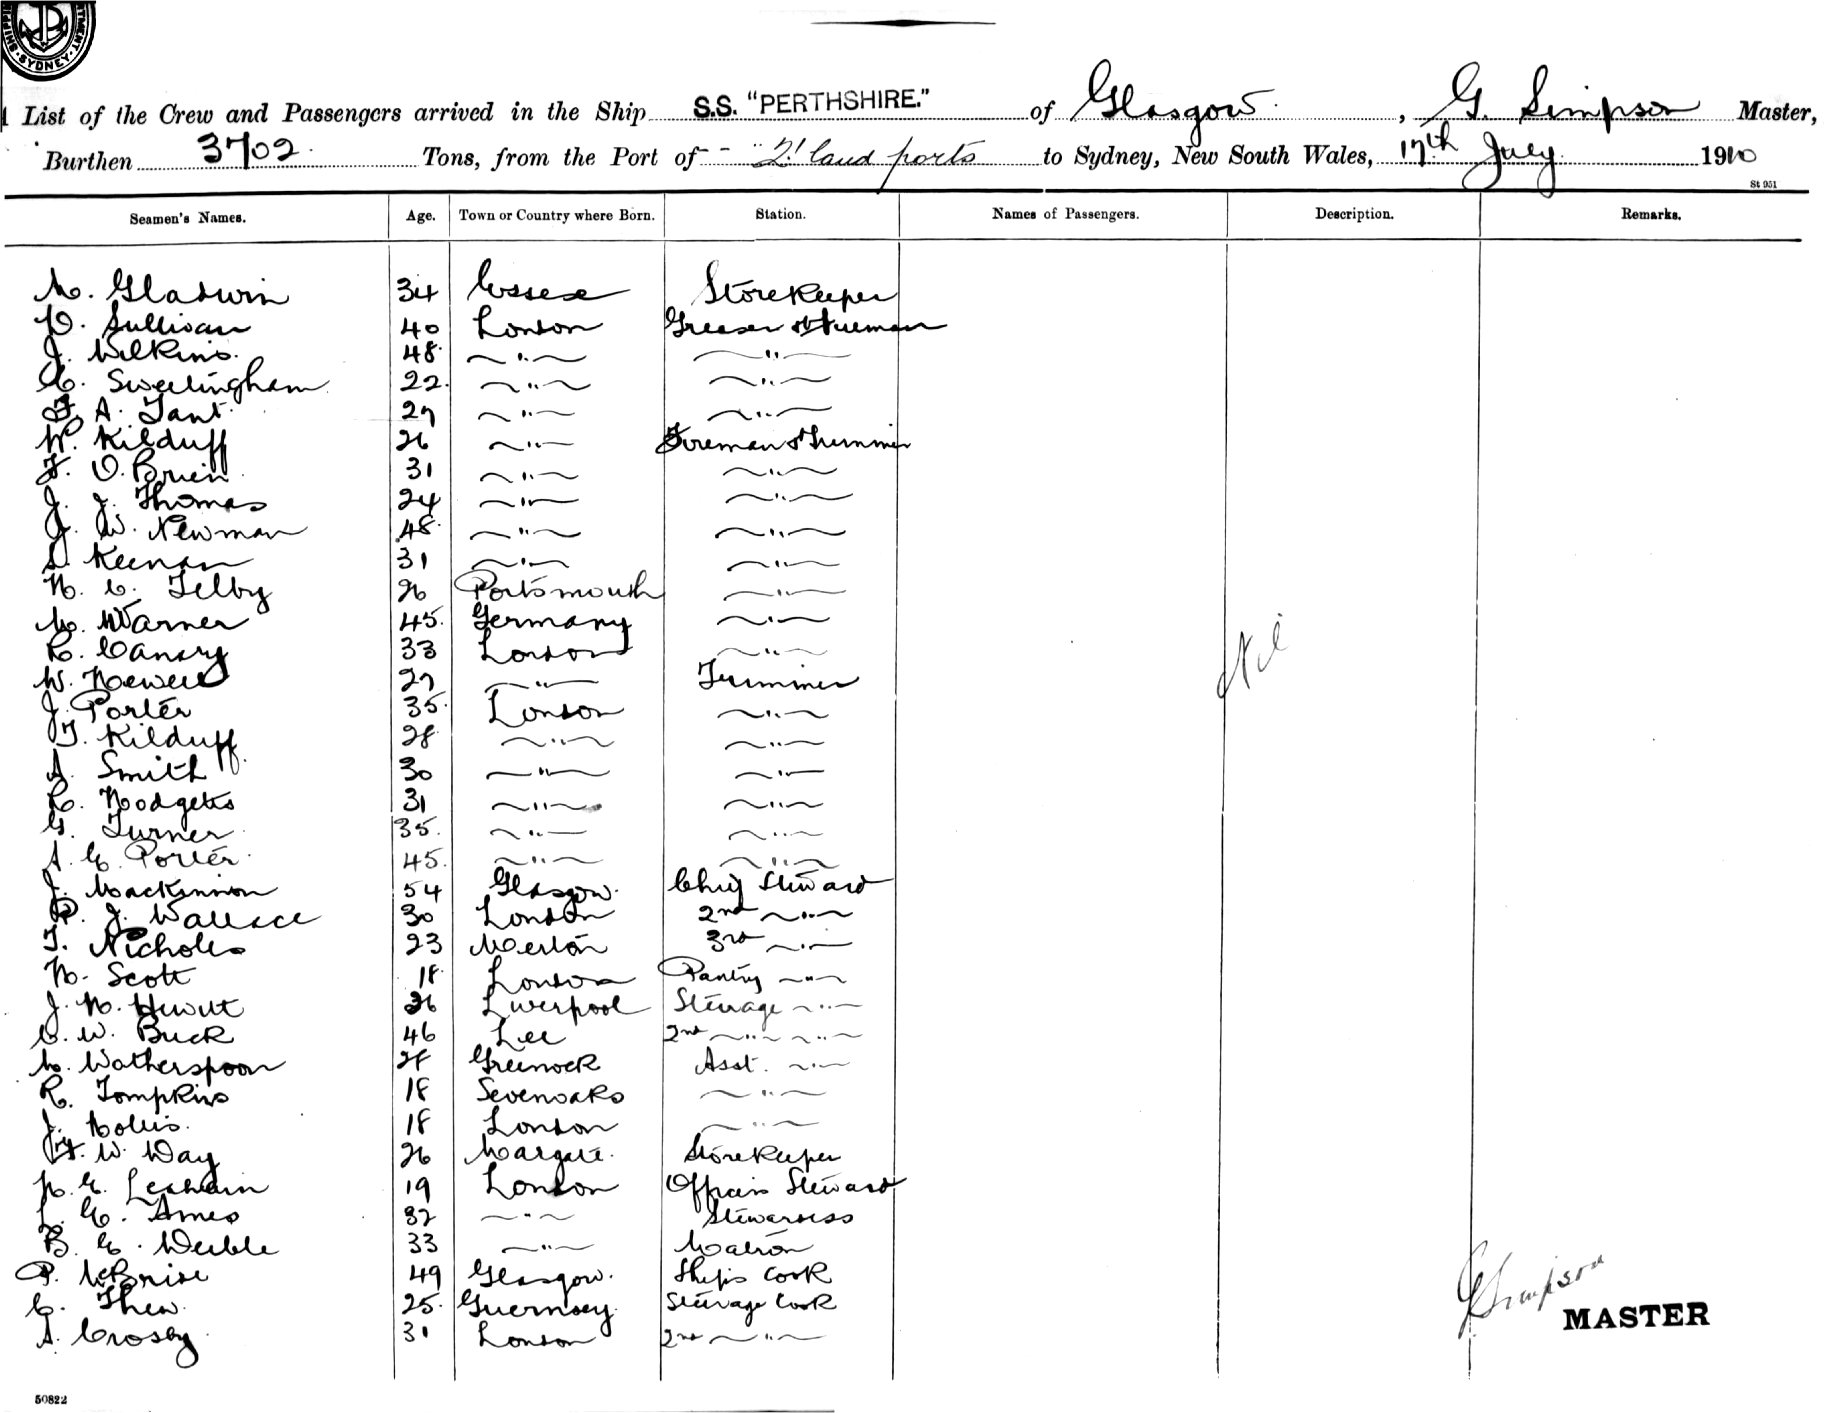 SHIPPING DEPARTMENT. SYDNEY.
List of the Crew and Passengers arrived in the Ship S.S. "PERTHSHIRE." of Glasgow, G. Simpson Master,
Burthen 3702 Tons, from the Port of Q'land ports to Sydney, New South Wales, 17th July 1910
St 951
Seamen's Names. Age. Town or Country where Born. Station. Names of Passengers. Description. Remarks.
M. Gladwin 34 Essex Storekeeper
D. Sullivan 40 London Greaser & Fireman
J. Wilkins. 48 " "
C. Sweetingham 22 " "
F. A. Tant. 27 " "
W. Kilduff 26 " Fireman & Trimmer
F. O.Brien 31 " "
J. J. Thomas 24 " "
J. W. Newman 48 " "
D. Keenan 31 " "
H. C. Telby 26 Portsmouth "
M. Warner 45 Germany "
R. Candy 33 London "
W. Newell 27 " Trimmer
J. Porter 35 London "
T. Kilduff 28 " "
A. Smith 30 " "
R. Hodgetts 31 " "
G. Turner 35 " "
A. G. Porter 45 " "
J. MacKinnon 54 Glasgow. Chief Steward
P. J. Wallace 30 London 2nd "
T. Nicholls 23 Merton 3rd "
H. Scott 18 London Pantry "
J. H. Hewitt 26 Liverpool Steerage "
C. W. Buck 46 Lee 2nd " "
M. Wotherspoon 28 Greenock Asst. "
R. Tompkins 18 Sevenoaks "
J. Hollis. 18 London "
H. W. Day 26 Margate. Storekeeper
H. G. Lexham 19 London Officers Steward
L. E. Ames 32 " Stewardess
B. E. Weible 33 " Matron
P. McBride 49 Glasgow. Ships Cook
C. Thew. 25 Guernsey Steerage Cook
A. Crosby 31 London 2nd "
Nil
G Simpson
MASTER
50822